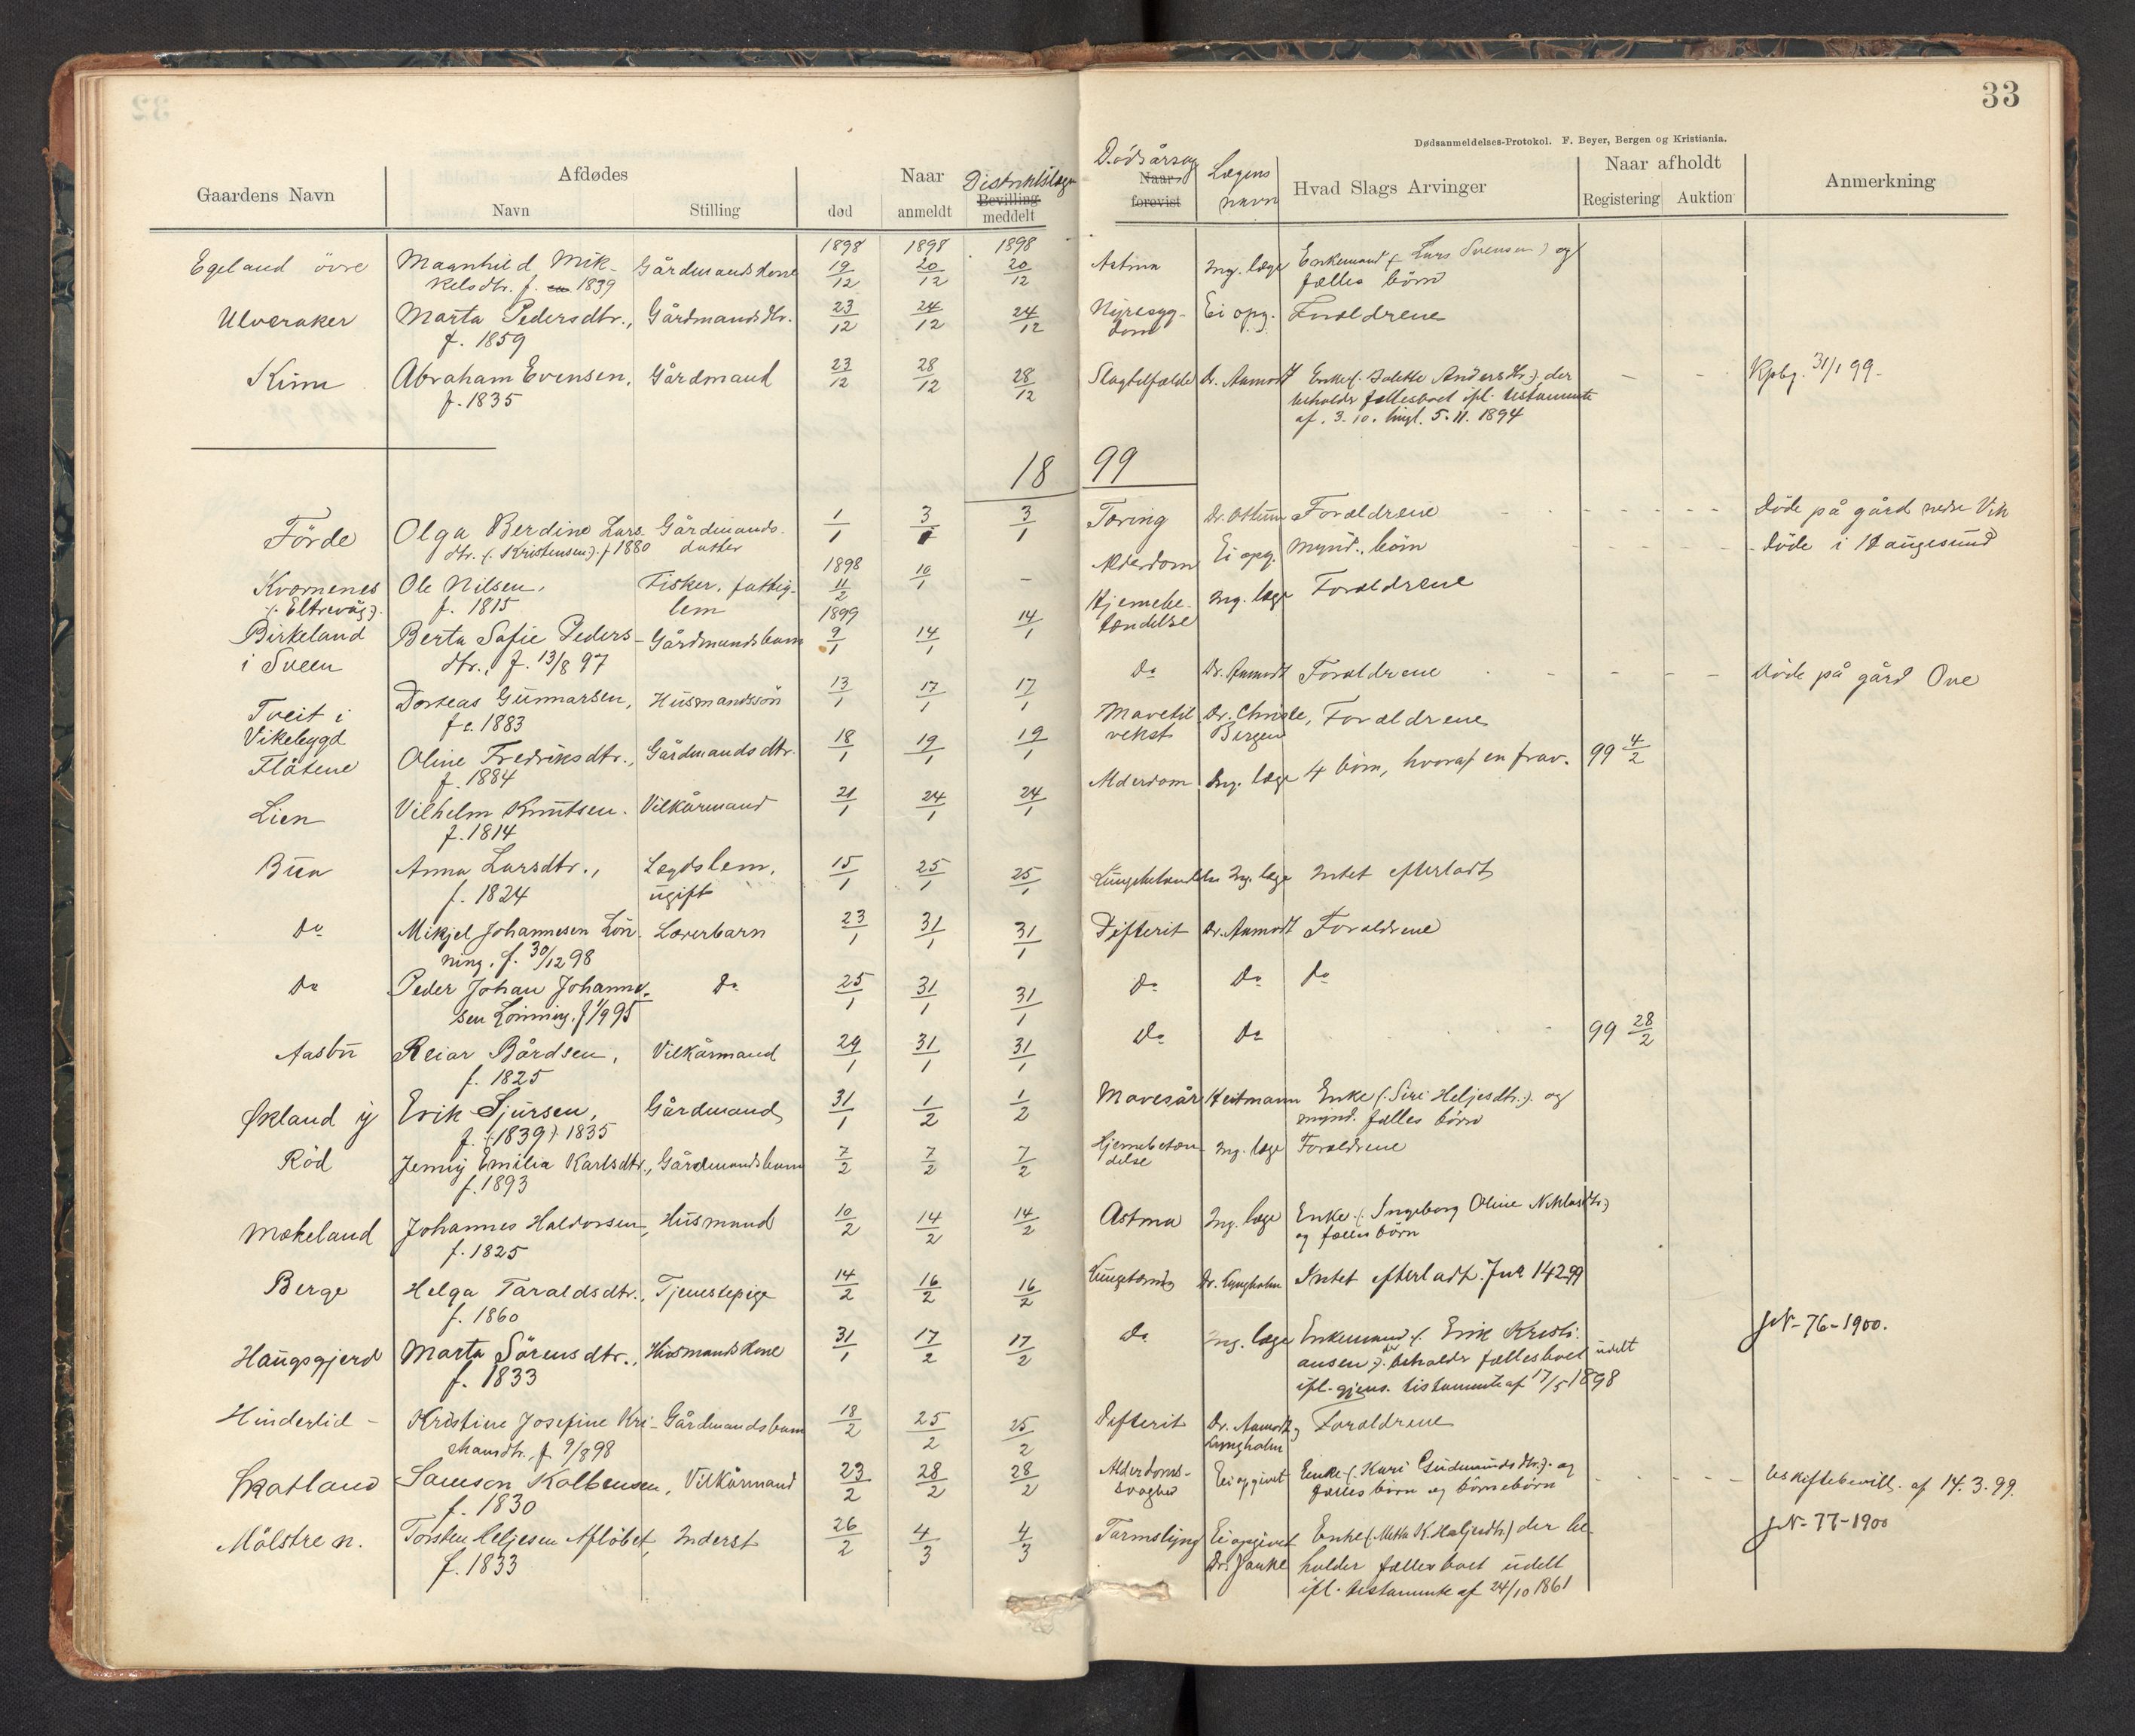 33
Dødsanmeldelses-Protokol. F. Beyer, Bergen og Kristiania.
Gaardens Navn
Afdødes
Navn
Stilling
Naar
død
anmeldt
Bevilling
meddelt
Dødsårsag
Naar
forevist
Lægens
navn
Hvad Slags Arvinger
Naar afholdt
Registering
Auktion
Anmerkning
1898 1898 1898
Egeland övre Magnhild Mik- Gårdmandskone 19/12 20/12 20/12 Astma Ing. læge Enkemand (: Lars Svensen :) og
kelsdtr. f. 1839 fælles börn
Ulveraker Marta Pedersdtr., Gårdmandsdtr. 23/12 24/12 24/12 Nyresyg- Ei opg. Forældrene
f. 1859 dom
Kinn Abraham Evensen, Gårdmand 23/12 28/12 28/12 Slagtilfælde Dr. Aamodt Enke (: Andersdtr. :) der — — Kpbg. 31/1 99.
f. 1835 beholdr fællesboet ifl. testamente
af 3.10. tingl. 5.11. 1894
18 99
Förde Olga Berdine Lars- Gårdmands- 1/1 3/1 3/1 Tæring Dr. Forældrene Döde på gård nedre Vik
dtr. (: Kristensen :) f 1880 datter
1898
Kvornenes Ole Nilsen, Fisker, fattig- 11/2 10/1 — Alderdom Ei opg. Mynd. börn Döde i Haugesund
(: Eltrevåg :) f. 1815 lem
1899
Birkeland Berta Sofie Peders- Gårdmandsbarn 9/1 14/1 14/1 Hjernebe- Ing. læge Forældrene
i Sveen dtr., f. 13/8 97 tændelse
Tveit i Gunnarsen, Husmandssön 13/1 17/1 17/1 Do Dr. Aamodt Forældrene Döde på gård
Vikebygd f c. 1883
Flåtene Oline Fredriksdtr., Gårdmandsdtr. 18/1 19/1 19/1 Dr. Christie, Forældrene
f. 1884 vekst Bergen
Lien Vilhelm Knutsen. Vilkårmand 21/1 24/1 24/1 Alderdom Ing. læge 4 börn, hvoraf en frav. 99 4/2
f. 1814
Bua Anna Larsdtr., Lægdslem, 15/1 25/1 25/1 Ing. læge Intet efterladt
f. 1824 ugift
Do Mikjel Johannesen Lön- Lærerbarn 23/1 31/1 31/1 Difterit Dr. Aamodt Forældrene
ning, f. 30/12 98
Do Peder Johan Johanne- Do 25/1 31/1 31/1 Do Do Do
sen Lönning, f 1/9 95
Aasbu Reiar Bårdsen, Vilkårmand 29/1 31/1 31/1 Do Do 99 28/2
f. 1825
Økland y Erik Sjursen, Gårdmand 31/1 1/2 1/2 Mavesår Heitmann Enke (: Siri Heljesdtr. :) og
f. (: 1839 :) 1835 mynd. fælles börn
Röd Jenny Emilia Karlsdtr., Gårdmandsbarn 7/2 7/2 7/2 Hjernebetæn- Ing. læge Forældrene
f. 1893 delse
Mokeland Johannes Haldorsen, Husmand 10/2 14/2 14/2 Astma Ing. læge Enke (: Ingeborg Oline Niklasdtr :)
f. 1825 og fælles börn
Berge Helga Taraldsdtr., Tjenestepige 14/2 16/2 16/2 Dr. Lyngholm Intet efterladt. 142 99
f. 1860
Haugsgjerd Marta Sörensdtr., Husmandskone 31/1 17/2 17/2 Do Ing. læge Enkemand (: Erik Kristi- JN- 76-1900.
f. 1833 ansen :) der beholdr fællesboet udelt
ifl. gjens. testamente af 17/5 1898
Hinderlid - Kristine Josefine Kri- Gårdmandsbarn 18/2 25/2 25/2 Difterit Dr. Aamodt og Forældrene
stiansdtr. f 9/8 98 Lyngholm
Skatland Samson Kolbensen, Vilkårmand 23/2 28/2 28/2 Alderdoms- Ei opgivet Enke (: Kari Gudmundsdtr. :) og Uskiftebevill. af 14.3.99.
f. 1830 svaghed fælles börn og börnebörn
Mölstre n. Torsten Heljesen Aflöbet, Inderst 26/2 4/3 4/3 Tarmslyng Ei opgivet Enke (: K. Heljesdtr.) der be- JN- 77-1900
f. 1833 Dr. Janke holder fællesboet udelt
ifl. testamente af 24/10 1861